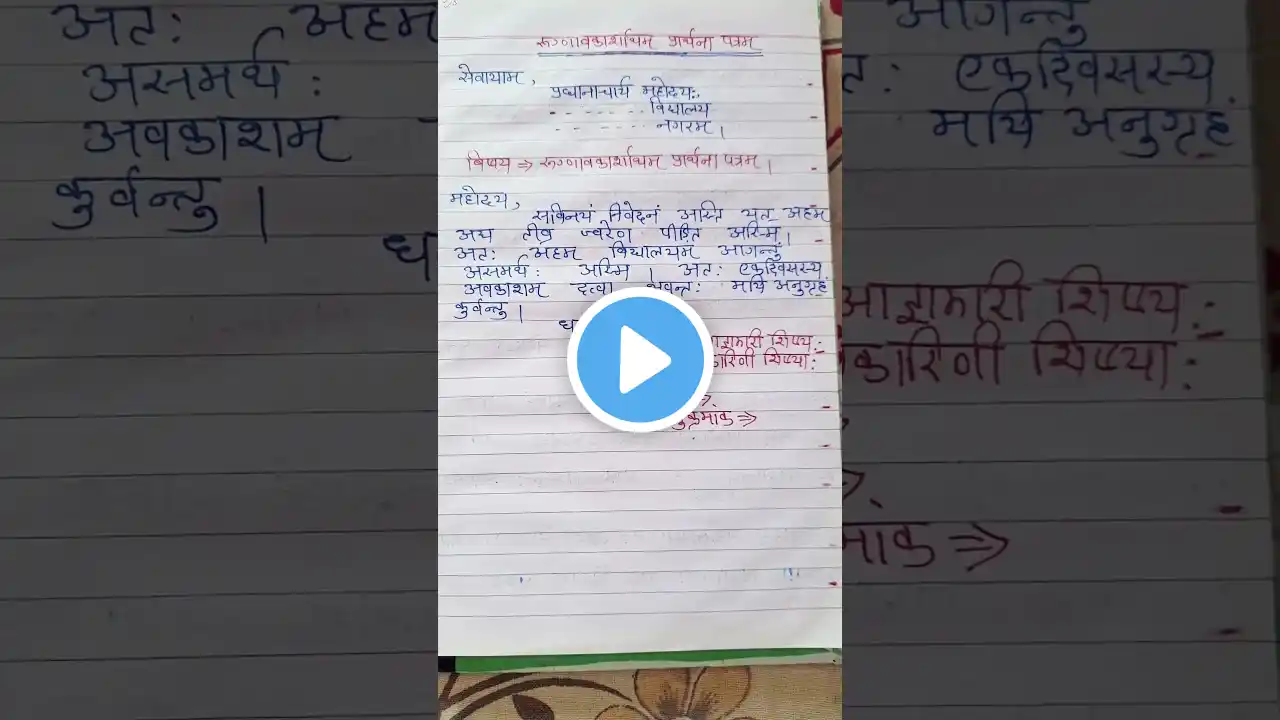 रूग्णावकाशार्थम प्रार्थना पत्रम
सेवायाम,
प्रधानाचार्य महोदय:,
- - - - - - - विद्यालय
- - - - - - - नगरम।
विषय ⇒ रूग्णावकाशार्थम प्रार्थना पत्रम।
महोदय,
सविनयं निवेदनं अस्ति यत अहम
अद्य तीव्र ज्वरेण पीडित अस्मि।
अत: अहम विद्यालयम आगन्तुं
असमर्थ: अस्मि। अत: एकदिवसस्य
अवकाशम दत्वा भवन्त: मयि अनुग्रहं
कुर्वन्तु।
आज्ञाकारी शिष्य:-
कारिणी शिष्या:
क्रमांक ⇒